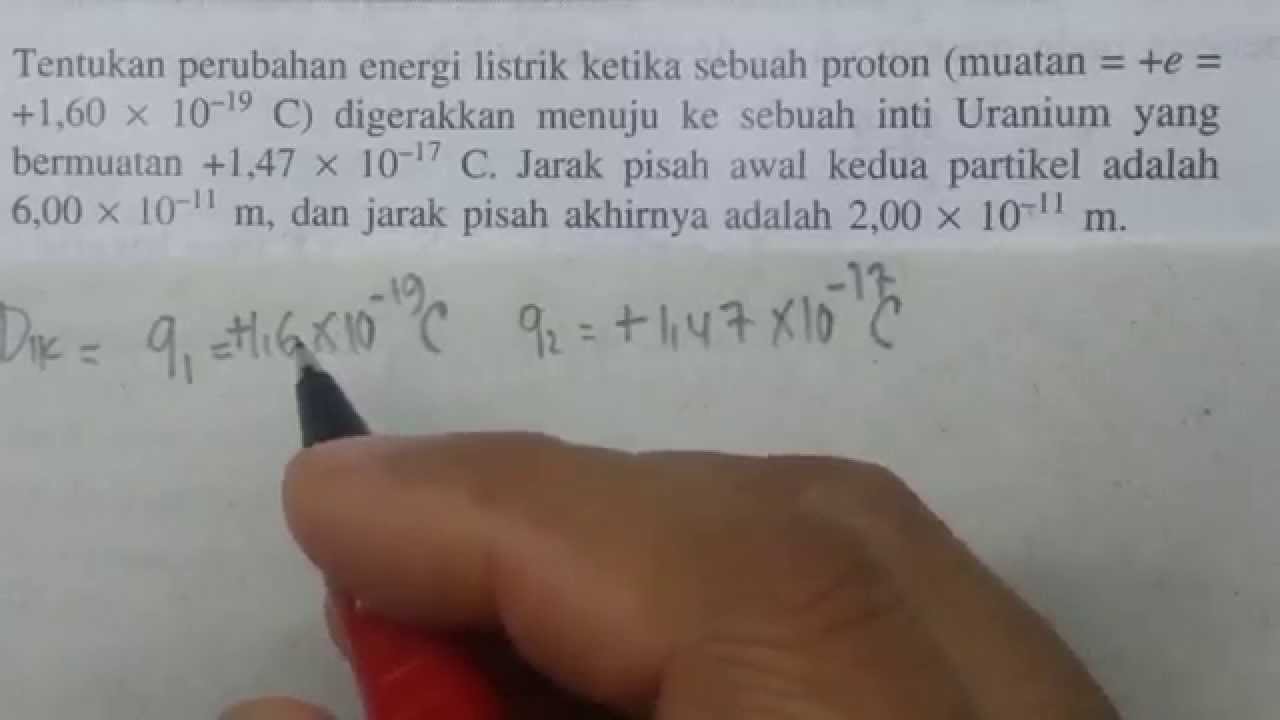 Tentukan perubahan energi listrik ketika sebuah proton (muatan = +e =
+1,60 × 10⁻¹⁹ C) digerakkan menuju ke sebuah inti Uranium yang
bermuatan +1,47 × 10⁻¹⁷ C. Jarak pisah awal kedua partikel adalah
6,00 × 10⁻¹¹ m, dan jarak pisah akhirnya adalah 2,00 × 10⁻¹¹ m.
Dik = q₁ = +1,6 × 10⁻¹⁹ C q₂ = +1,47 × 10⁻¹⁷ C